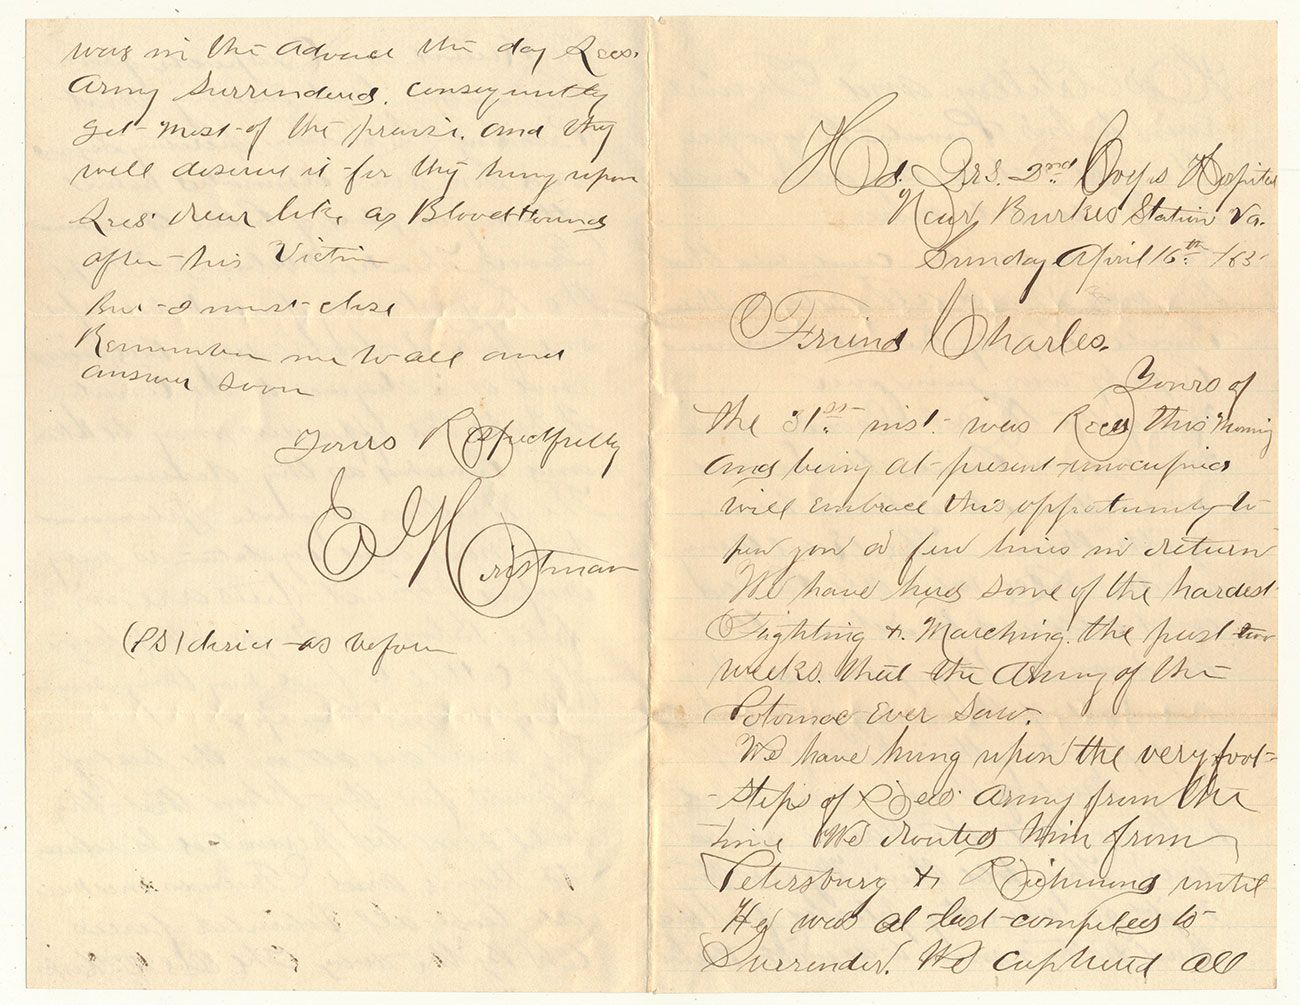 Hd. Qrs. 2nd Corps Hospital
Near Burkes Station Va.
Sunday April 16th /65
Friend Charles.
Yours of
the 31st. inst. was Recd this Morning
and being at present unocupied
will embrace this opportunity to
pen you a few lines in return
We have had some of the hardest
Fighting & Marching the past two
weeks. that the Army of the
Potomac Ever saw.
We have hung upon the very foot-
-steps of Lees Army from the
time We routed him from
Petersburg & Richmond until
He was at last compeled to
Surrender. We captured all
was in the advance the day Lees.
Army Surrendered. consequntly
get most of the praise. and they
well deserve it for they hung upon
Lees rear like a Blood Hound
after his Victim
But I must close
Remember me to all and
answer soon
Yours Respectfully
E Hristman
(PS) direct as before